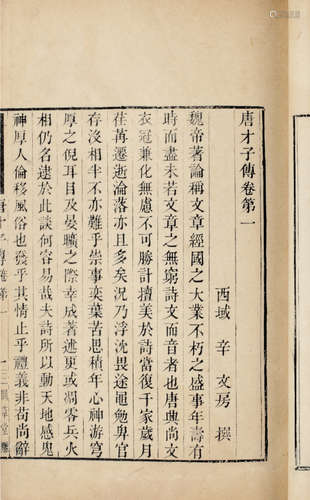 唐才子傳卷第一
西域 辛文房 撰
魏帝著論稱文章經國之大業不朽之盛事年壽有
時而盡未若文章之無窮詩文而音者也唐興尚文
衣冠兼化無慮不可勝計擅美於詩當復千家歲月
荏苒遷逝淪落亦且多矣況乃浮沈畏途黽勉卑官
存沒相半不亦難乎崇事奕葉苦思積年心神游穹
厚之倪耳目及晏曠之際幸成著述更或凋零兵火
相仍名逮於此談何容易哉夫詩所以動天地感鬼
神厚人倫移風俗也發乎其情止乎禮義非苟尚辭
唐才子傳卷第一
一
三間草堂雕